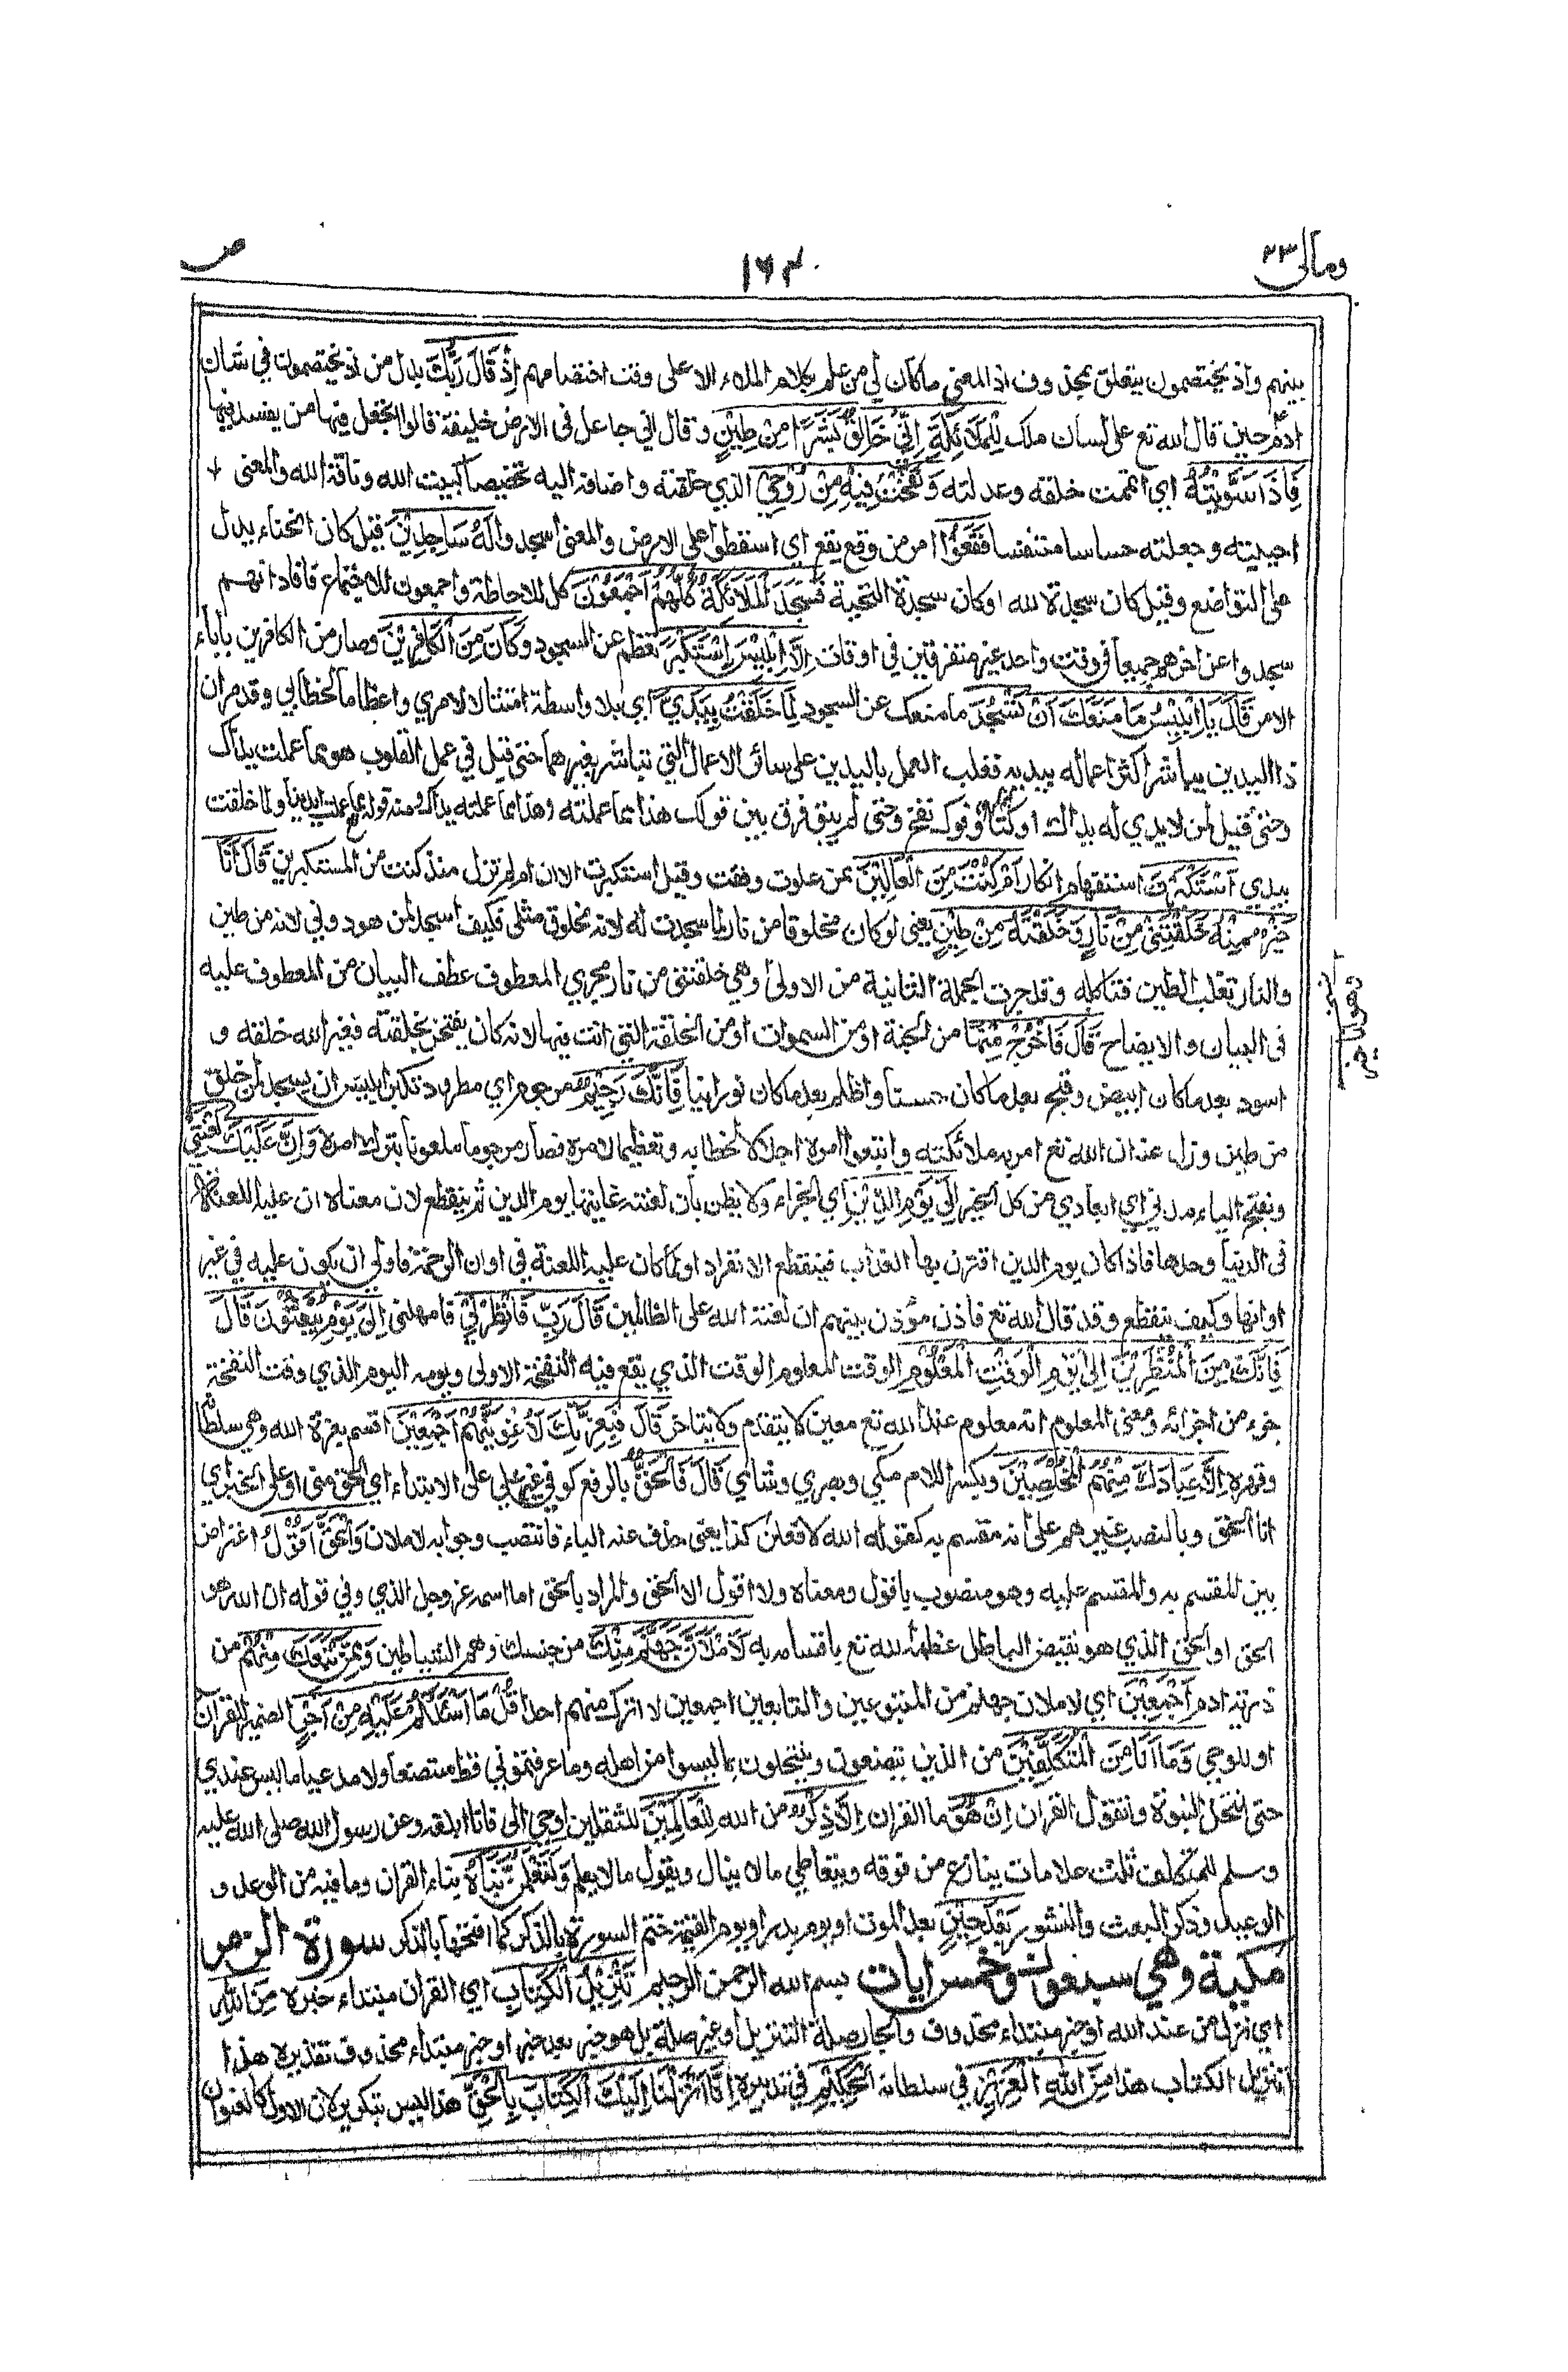 ومالى ٢٣
١٦٣
ص
بينهم واذ يختصمون يتعلق بمحذوف اذ المعنى ما كان لي من علم بكلام الملاء الاعلى وقت اختصامهم اِذْ قَالَ رَبُّكَ بدل من اذ يختصمون في شان
ادم حين قال الله تع على لسان ملك لِلْمَلَائِكَةِ اِنِّي خَالِقٌ بَشَرًا مِنْ طِيْنٍ وقال اني جاعل فى الارض خليفة قالوا اتجعل فيها من يفسد فيها
فَاِذَا سَوَّيْتُهُ اي اتممت خلقه وعدلته وَنَفَخْتُ فِيْهِ مِنْ رُوْحِيْ الذي خلقته واضافه اليه تخصيصا كبيت الله وناقة الله والمعنى
احييته وجعلته حساسا متنفسا فَقَعُوْا امر من وقع يقع اي اسقطوا على الارض والمعنى اسجدوا لَهُ سَاجِدِيْنَ قيل كان انحناء يدل
على التواضع وقيل كان سجدة لله او كان سجدة التحية فَسَجَدَ الْمَلَائِكَةُ كُلُّهُمْ اَجْمَعُوْنَ كل للاحاطة واجمعون للاجتماع فافاد انهم
سجدوا عن اخرهم جميعا في وقت واحد غير متفرقين في اوقات اِلَّا اِبْلِيْسَ اِسْتَكْبَرَ تعظم عن السجود وَكَانَ مِنَ الْكَافِرِيْنَ وصار من الكافرين باباء
الامر قَالَ يَا اِبْلِيْسُ مَا مَنَعَكَ اَنْ تَسْجُدَ ما منعك عن السجود لِمَا خَلَقْتُ بِيَدَيَّ اي بلا واسطة امتثالا لامري واعظاما لخطابي وقد مر ان
ذا اليدين يباشر اكثر اعماله بيديه فغلب العمل باليدين على سائر الاعمال التي تباشر بغيرهما حتى قيل في عمل القلوب هو مما عملت يداك
وحتى قيل لمن لا يدي له يداك اوكتا وفوك نفخ وحتى لم يبق فرق بين قولك هذا مما عملته وهذا مما عملته يداك ومنه قوله مما عملت ايدينا ولما خلقت
بيدي اَسْتَكْبَرْتَ استفهام انكار اَمْ كُنْتَ مِنَ الْعَالِيْنَ ممن علوت وفقت وقيل استكبرت الان ام لم تزل منذ كنت من المستكبرين قَالَ اَنَا
خَيْرٌ مِنْهُ خَلَقْتَنِيْ مِنْ نَّارٍ وَخَلَقْتَهُ مِنْ طِيْنٍ يعنى لو كان مخلوقا من نار لما سجدت له لانه مخلوق مثلى فكيف اسجد لمن هو دوني لانه من طين
والنار تغلب الطين فتاكله وقد جرت الجملة الثانية من الاولى وهي خلقتنى من نار مجرى المعطوف عطف البيان من المعطوف عليه
فى البيان والايضاح قَالَ فَاخْرُجْ مِنْهَا من الجنة او من السموات او من الخلقة التي انت فيها لانه كان يفتخر بخلقته فغير الله خلقه و
اسود بعد ما كان ابيض وقبح بعد ما كان حسنا واظلم بعد ما كان نورانيا فَاِنَّكَ رَجِيْمٌ مرجوم اي مطرود تكبر ابليس ان يسجد لمن خلق
من طين وزل عنه ان الله تع امر به ملائكته واتبعوا امره اجلالا لخطابه وتعظيما لامره فصار مرجوما ملعونا بترك امره وَاِنَّ عَلَيْكَ لَعْنَتِيْ
وبفتح الياء مدني اي ابعادي من كل الخير اِلٰى يَوْمِ الدِّيْنِ اي الجزاء ولا يظن بان لعنته غايتها يوم الدين ثم ينقطع لان معناه ان عليه اللعنة
فى الدنيا وحدها فاذا كان يوم الدين اقترن بها العذاب فينقطع الانفراد او لما كان عليه اللعنة في اوان الرحمة فاولى ان يكون عليه في غير
اوانها وكيف ينقطع وقد قال الله تع فاذن مؤذن بينهم ان لعنة الله على الظالمين قَالَ رَبِّ فَاَنْظِرْنِيْ فامهلنى اِلٰى يَوْمِ يُبْعَثُوْنَ قَالَ
فَاِنَّكَ مِنَ الْمُنْظَرِيْنَ اِلٰى يَوْمِ الْوَقْتِ الْمَعْلُوْمِ الوقت المعلوم الوقت الذي يقع فيه النفخة الاولى ويومه اليوم الذي وقت النفخة
جزء من اجزائه ومعنى المعلوم انه معلوم عند الله تع معين لا يتقدم ولا يتاخر قَالَ فَبِعِزَّتِكَ لَاُغْوِيَنَّهُمْ اَجْمَعِيْنَ اقسم بعزة الله وهي سلطانه
وقهره اِلَّا عِبَادَكَ مِنْهُمُ الْمُخْلَصِيْنَ وبكسر اللام مكي وبصري وشامي قَالَ فَالْحَقُّ بالرفع كوفي غير علي على الابتداء اي الحق منى او على الخبر اي
انا الحق وبالنصب غيرهم على انه مقسم به كقوله الله لافعلن كذا يعنى حذف عنه الباء فانتصب وجوابه لاملان وَالْحَقَّ اَقُوْلُ اعتراض
بين المقسم به والمقسم عليه وهو منصوب باقول ومعناه ولا اقول الا الحق والمراد بالحق اما اسمه عز وجل الذي وفي قوله ان الله هو
الحق او الحق الذي هو نقيض الباطل عظمه الله تع باقسامه به لَاَمْلَاَنَّ جَهَنَّمَ مِنْكَ من جنسك وهم الشياطين وَمِمَّنْ تَبِعَكَ مِنْهُمْ من
ذرية ادم اَجْمَعِيْنَ اي لاملان جهنم من المتبوعين والتابعين اجمعين لا اترك منهم احدا قُلْ مَا اَسْئَلُكُمْ عَلَيْهِ مِنْ اَجْرٍ الضمير للقران
او للوحي وَمَا اَنَا مِنَ الْمُتَكَلِّفِيْنَ من الذين يتصنعون وينتحلون بما ليسوا من اهله وما عرفتموني قط متصنعا ولا مدعيا ما ليس عندي
حتى انتحل النبوة واتقول القران اِنْ هُوَ ما القران اِلَّا ذِكْرٌ من الله لِلْعَالَمِيْنَ للثقلين اوحي الى فانا ابلغه وعن رسول الله صلى الله عليه
وسلم للمتكلف ثلث علامات ينازع من فوقه ويتعاطي ما لا ينال ويقول ما لا يعلم وَلَتَعْلَمُنَّ نَبَاَهُ نباء القران وما فيه من الوعد و
الوعيد وذكر البعث والنشور بَعْدَ حِيْنٍ بعد الموت او يوم بدر او يوم القيمة ختم السورة بالذكر كما افتتحها بالذكر سورة الزمر
مكية وهي سبعون وخمس ايات بسم الله الرحمن الرحيم تَنْزِيْلُ الْكِتَابِ اي القران مبتداء خبره مِنَ اللهِ
اي نزل من عند الله او خبر مبتداء محذوف والجار صلة التنزيل او غير صلة بل هو خبر بعد خبر او خبر مبتداء محذوف تقديره هذا
تنزيل الكتاب هذا مِنَ اللهِ الْعَزِيْزِ في سلطانه الْحَكِيْمِ في تدبيره اِنَّا اَنْزَلْنَا اِلَيْكَ الْكِتَابَ بِالْحَقِّ هذا ليس بتكرير لان الاول كالعنوان